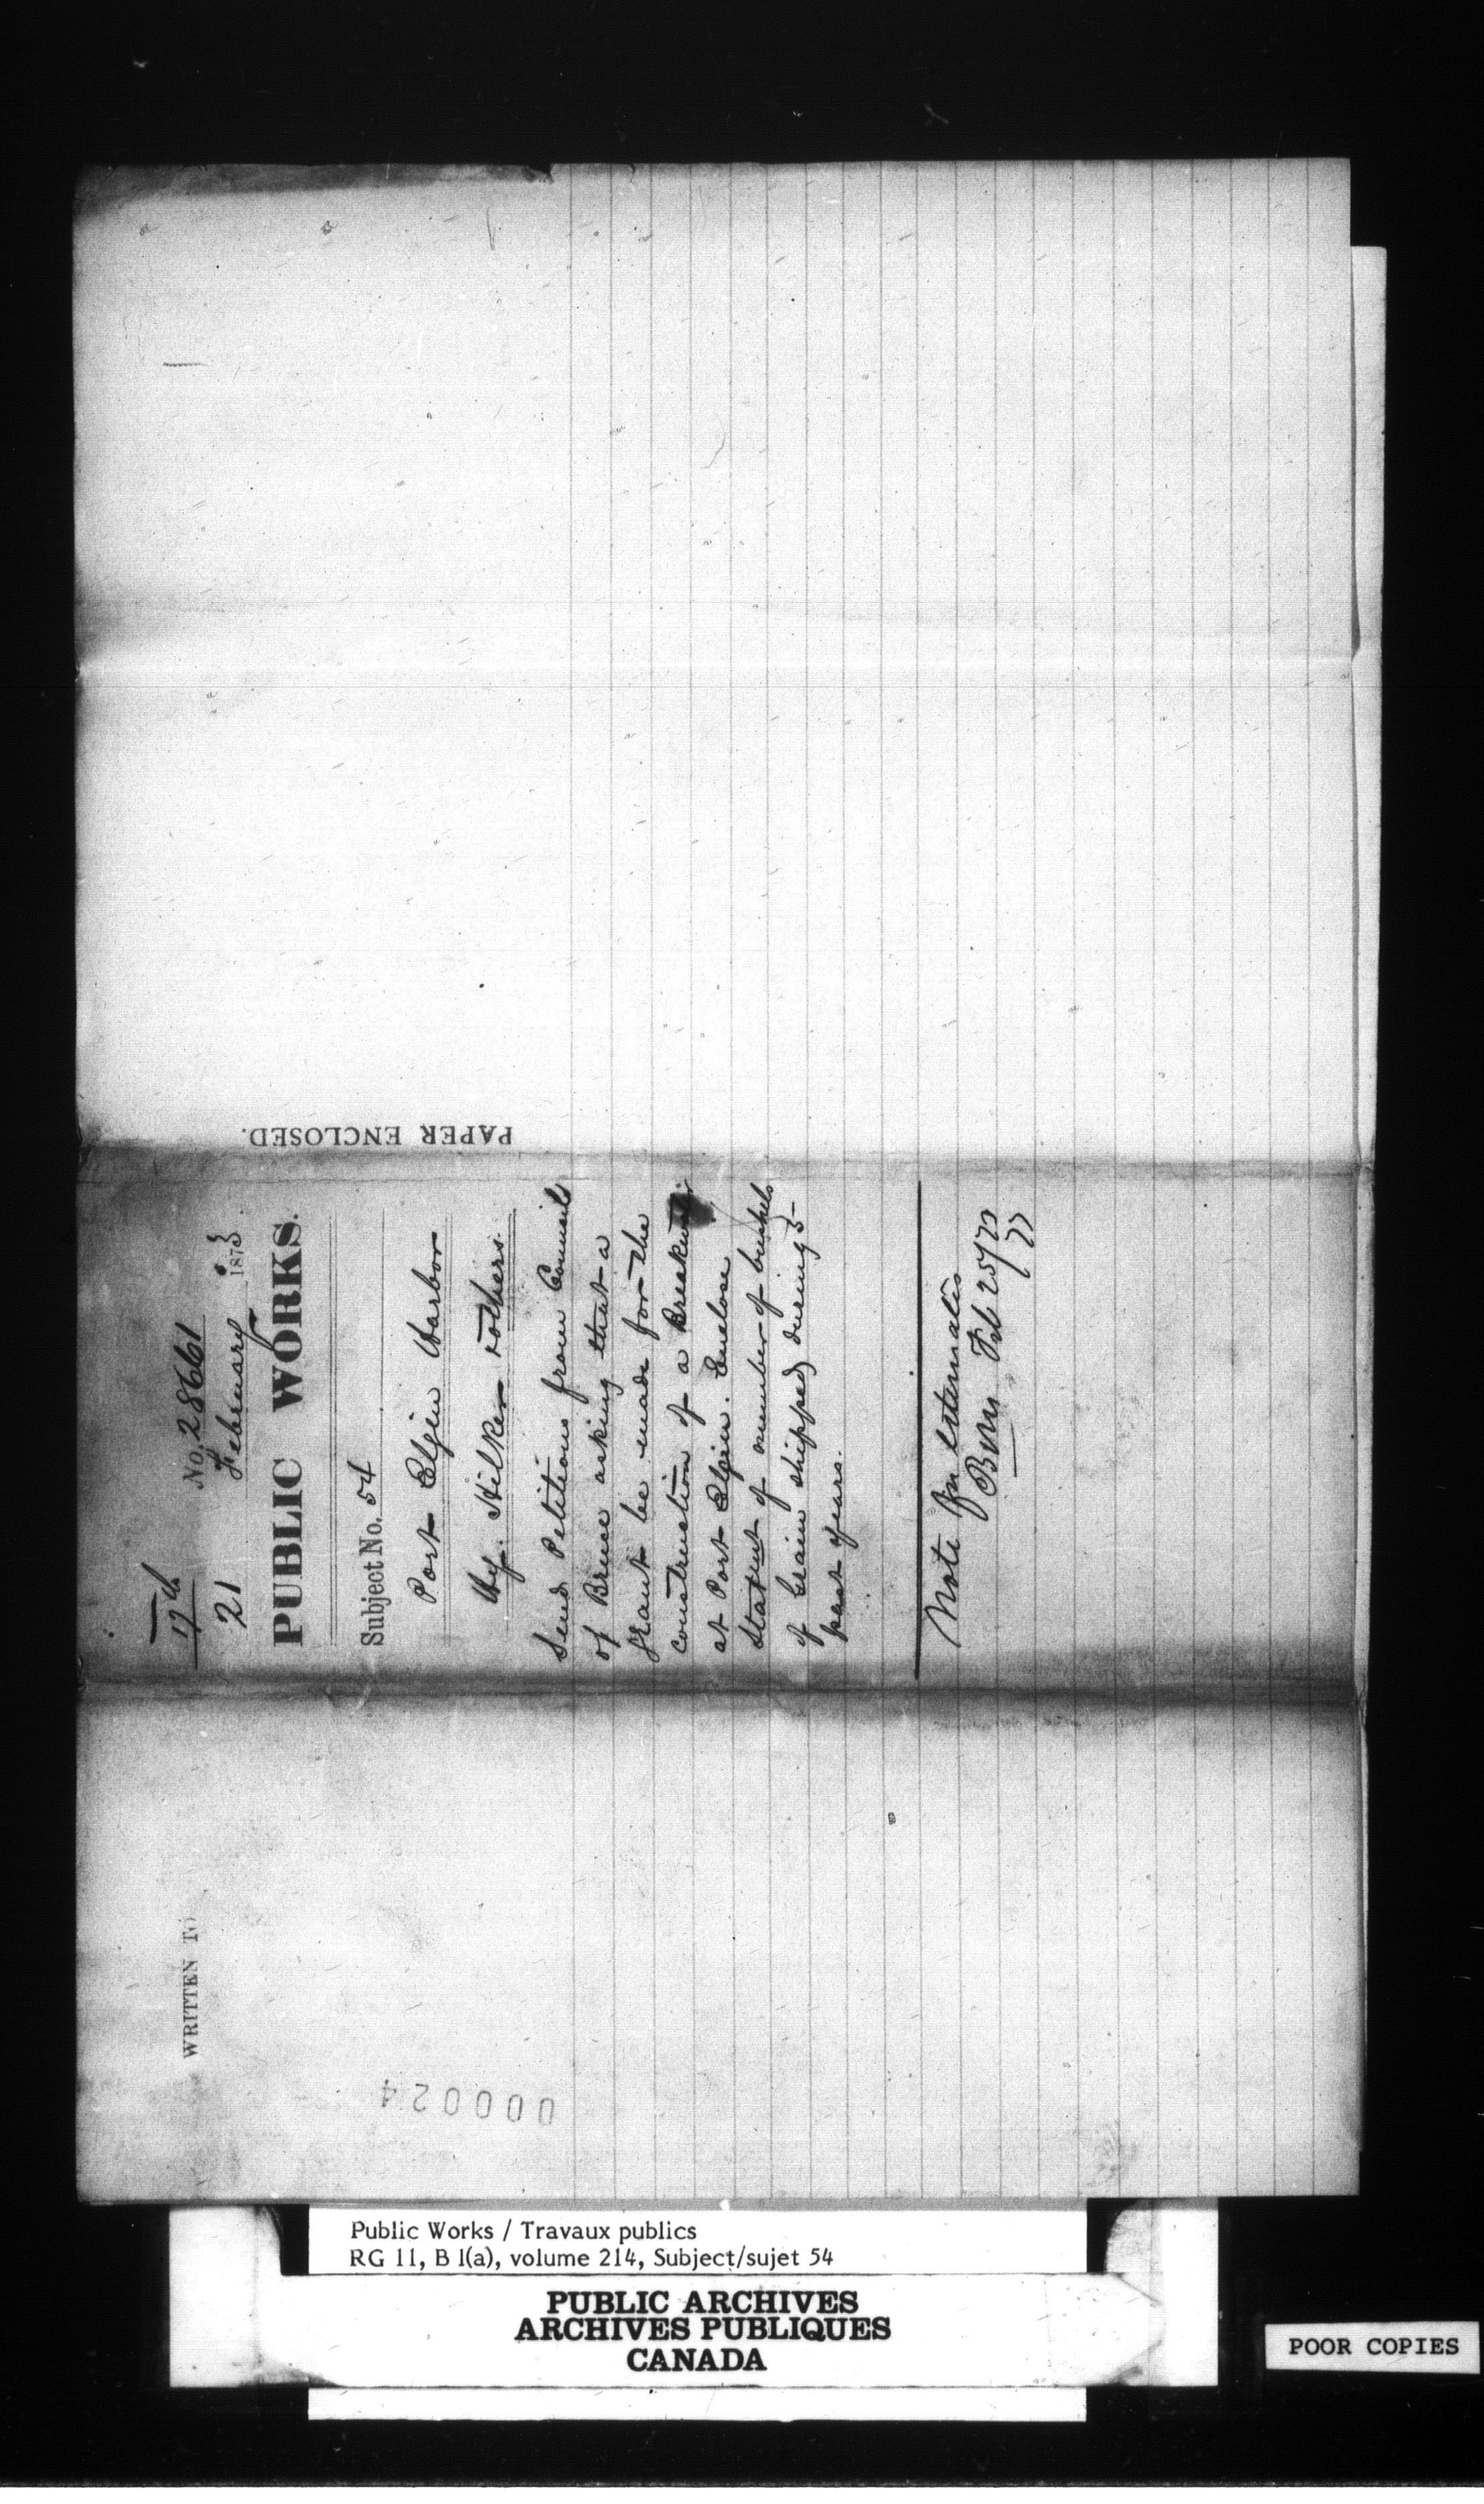 17th
No. 28661
21 February 1873
PUBLIC WORKS.
Subject No. 54
Port Elgin Harbor
Hy. Hilker + others.
Send Petitions from Councils
of Bruce asking that a
grant be made for the
construction of a Breakwater
at Port Elgin. Enclose
Statemt of number of bushels
of Grain shipped during 5
past years.
Note for Estimates
Feb 25/73
PAPER ENCLOSED.
WRITTEN TO
000024
Public Works / Travaux publics
RG 11, B 1(a), volume 214, Subject/sujet 54
PUBLIC ARCHIVES
ARCHIVES PUBLIQUES
CANADA
POOR COPIES